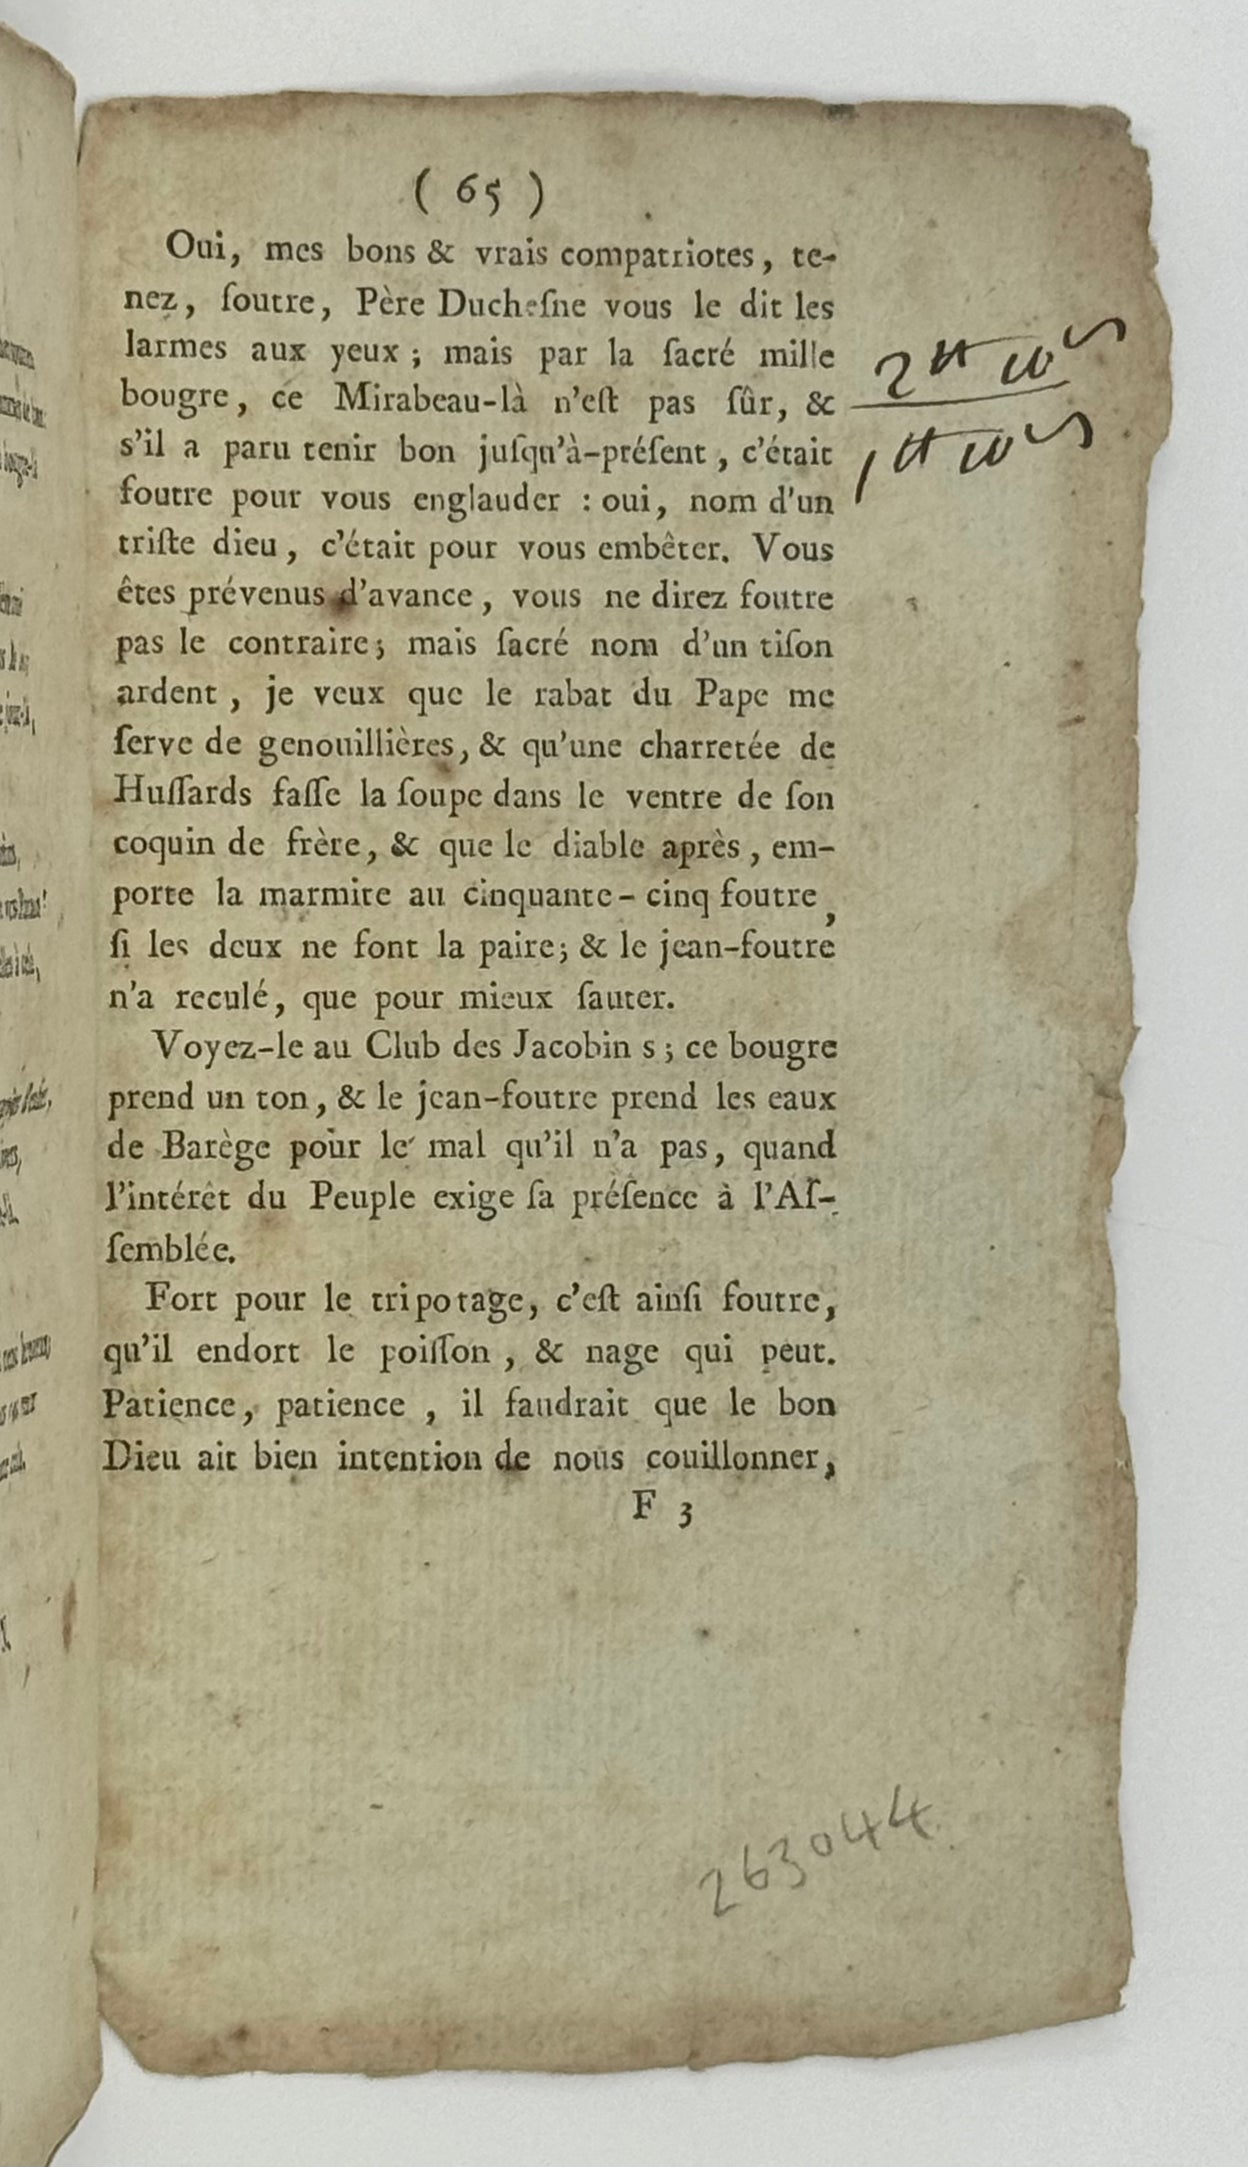 ( 65 )
Oui, mes bons & vrais compatriotes, te-
nez, ſoutre, Père Ducheſne vous le dit les
larmes aux yeux ; mais par la ſacré mille
bougre, ce Mirabeau-là n'eſt pas ſûr, &
s'il a paru tenir bon juſqu'à-préſent, c'était
foutre pour vous englauder : oui, nom d'un
triſte dieu, c'était pour vous embêter. Vous
êtes prévenus d'avance, vous ne direz foutre
pas le contraire; mais ſacré nom d'un tiſon
ardent, je veux que le rabat du Pape me
ſerve de genouillières, & qu'une charretée de
Huſſards faſſe la ſoupe dans le ventre de ſon
coquin de frère, & que le diable après, em-
porte la marmite au cinquante-cinq foutre,
ſi les deux ne font la paire; & le jean-foutre
n'a reculé, que pour mieux ſauter.
Voyez-le au Club des Jacobin s; ce bougre
prend un ton, & le jean-foutre prend les eaux
de Barège pour le mal qu'il n'a pas, quand
l'intérêt du Peuple exige ſa préſence à l'Aſ-
ſemblée.
Fort pour le tripotage, c'eſt ainſi foutre,
qu'il endort le poiſſon, & nage qui peut.
Patience, patience, il faudrait que le bon
Dieu ait bien intention de nous couillonner,
F 3
263044